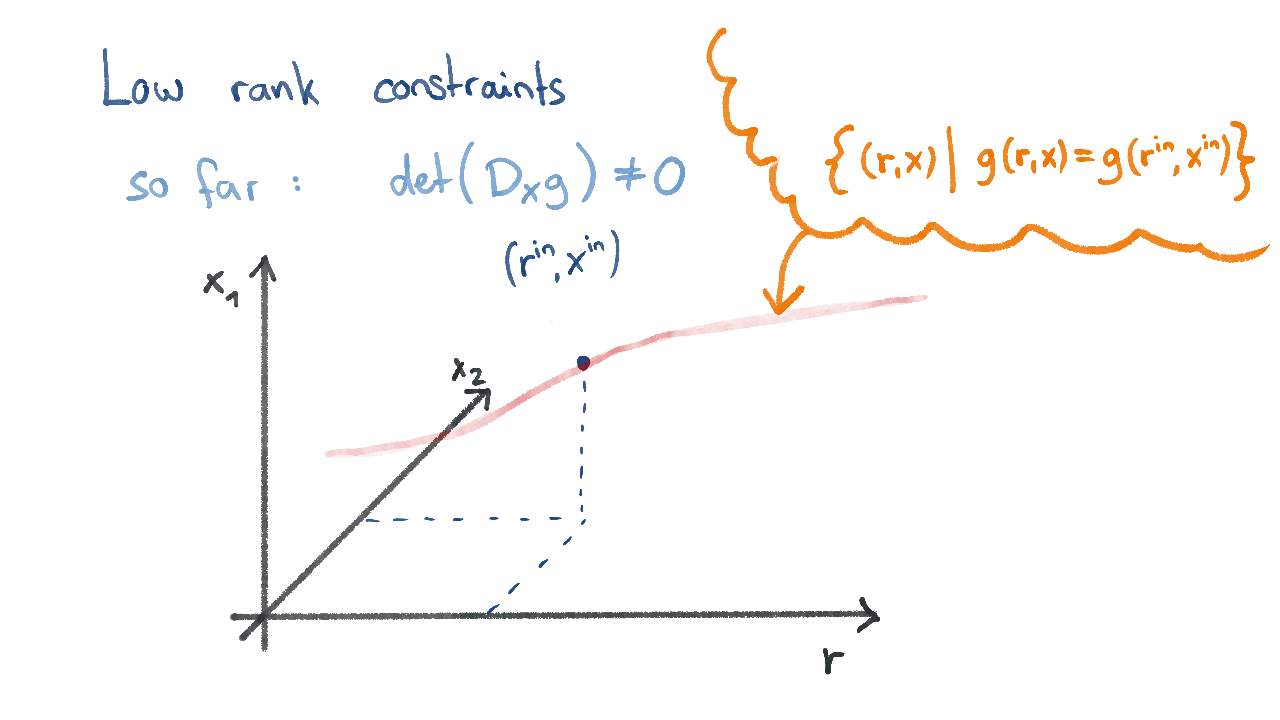 Low rank constraints
so far : det(Dₓg) ≠ 0
{(r,x) | g(r,x) = g(rⁱⁿ, xⁱⁿ)}
(rⁱⁿ, xⁱⁿ)
x₁
x₂
r